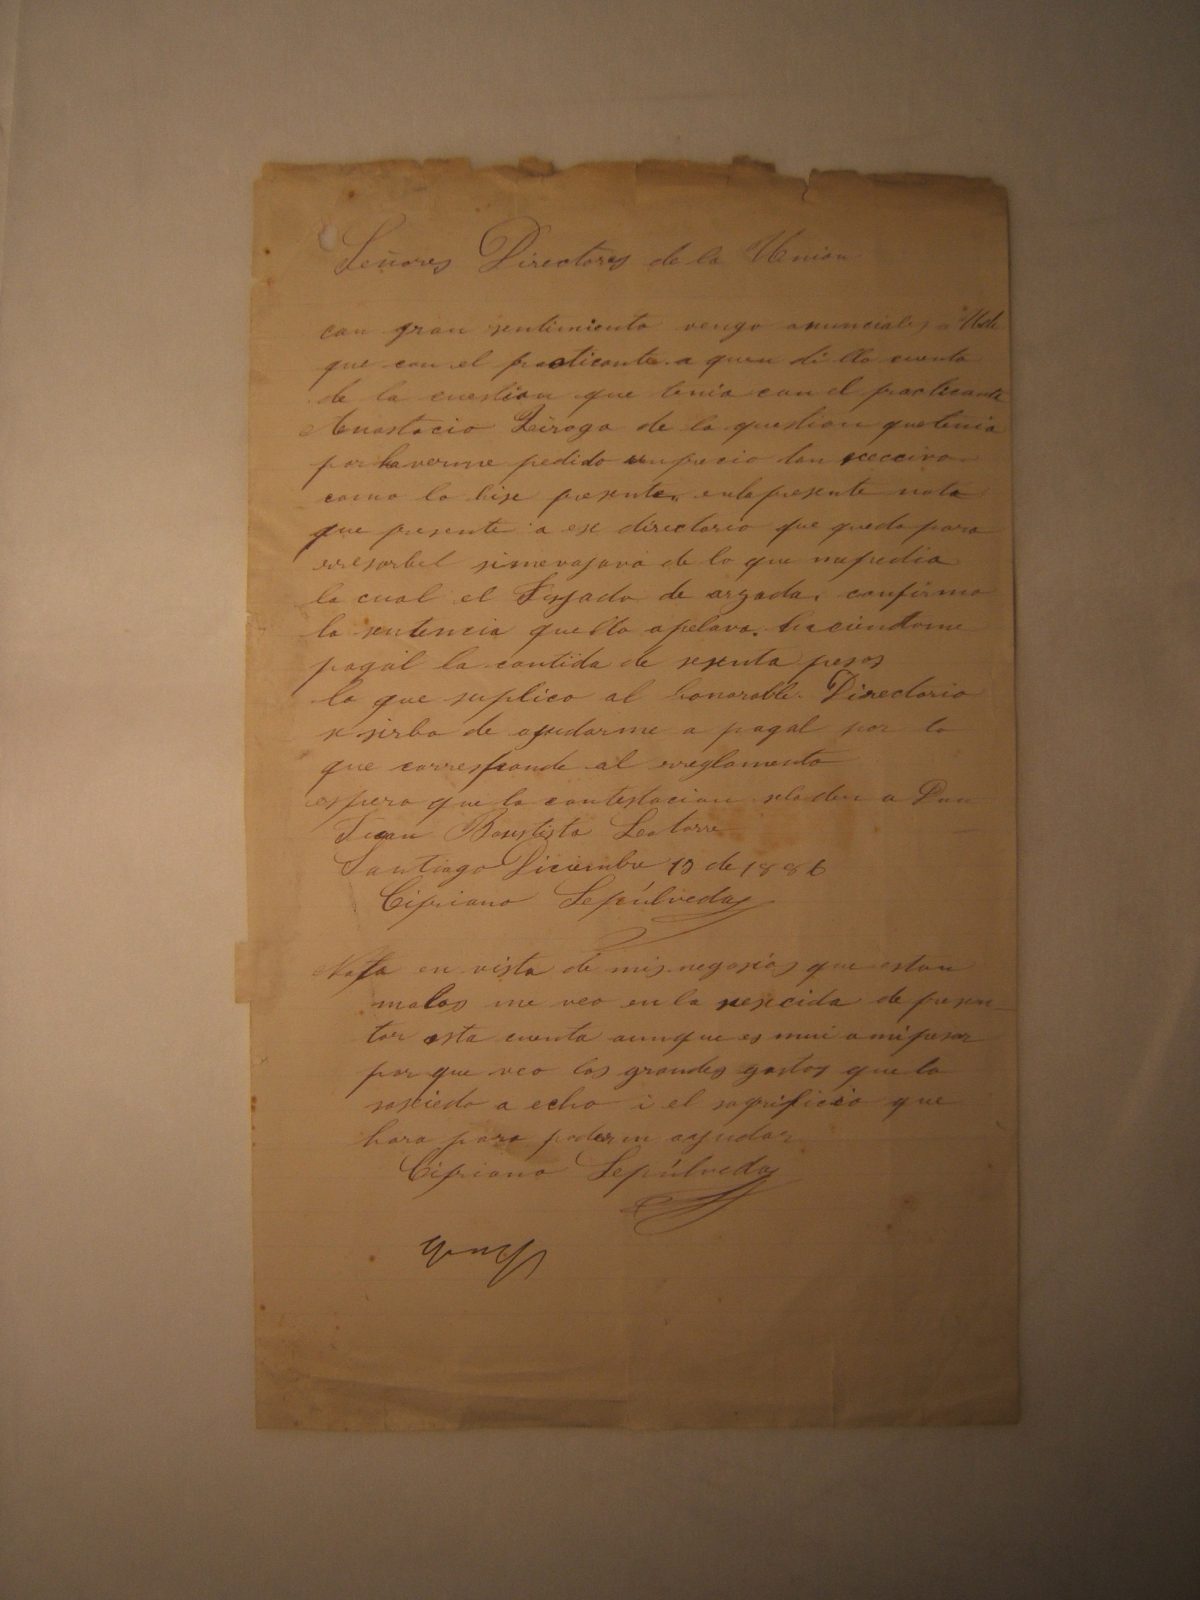 Señores Directores de la Union
con gran sentimiento vengo anunciales a Uste
que con el practicante a quien di lla cuenta
de la cuestion que tenia con el practicante
Anastacio Qiroga de la question que tenia
por haverme pedido un precio tan ecceciva
como lo hise presente en la presente nota
que presente a ese directorio que quedo para
rresorbel si me vajava de lo que me pedia
la cual el Jusgado de confirmo
la sentencia questa apelava. haciendome
pagal la cantida de sesenta pesos
lo que suplico al honorable Directorio
se sirba de ajudarme a pagal por lo
que corresponde al rreglamento
espero que la contestacion se la den a Don
Juan Bautista Leatorre
Santiago Diciembre 19 de 1886
Cipriano Sepúlveda
Nota en vista de mis negosios que estan
malos me veo en la nesecida de presen-
tar esta cuenta aunque es mui a mi pesar
por que veo los grandes gastos que la
sosieda a echo i el sagrificio que
hara para poderm ayudar
Cipriano Sepúlveda